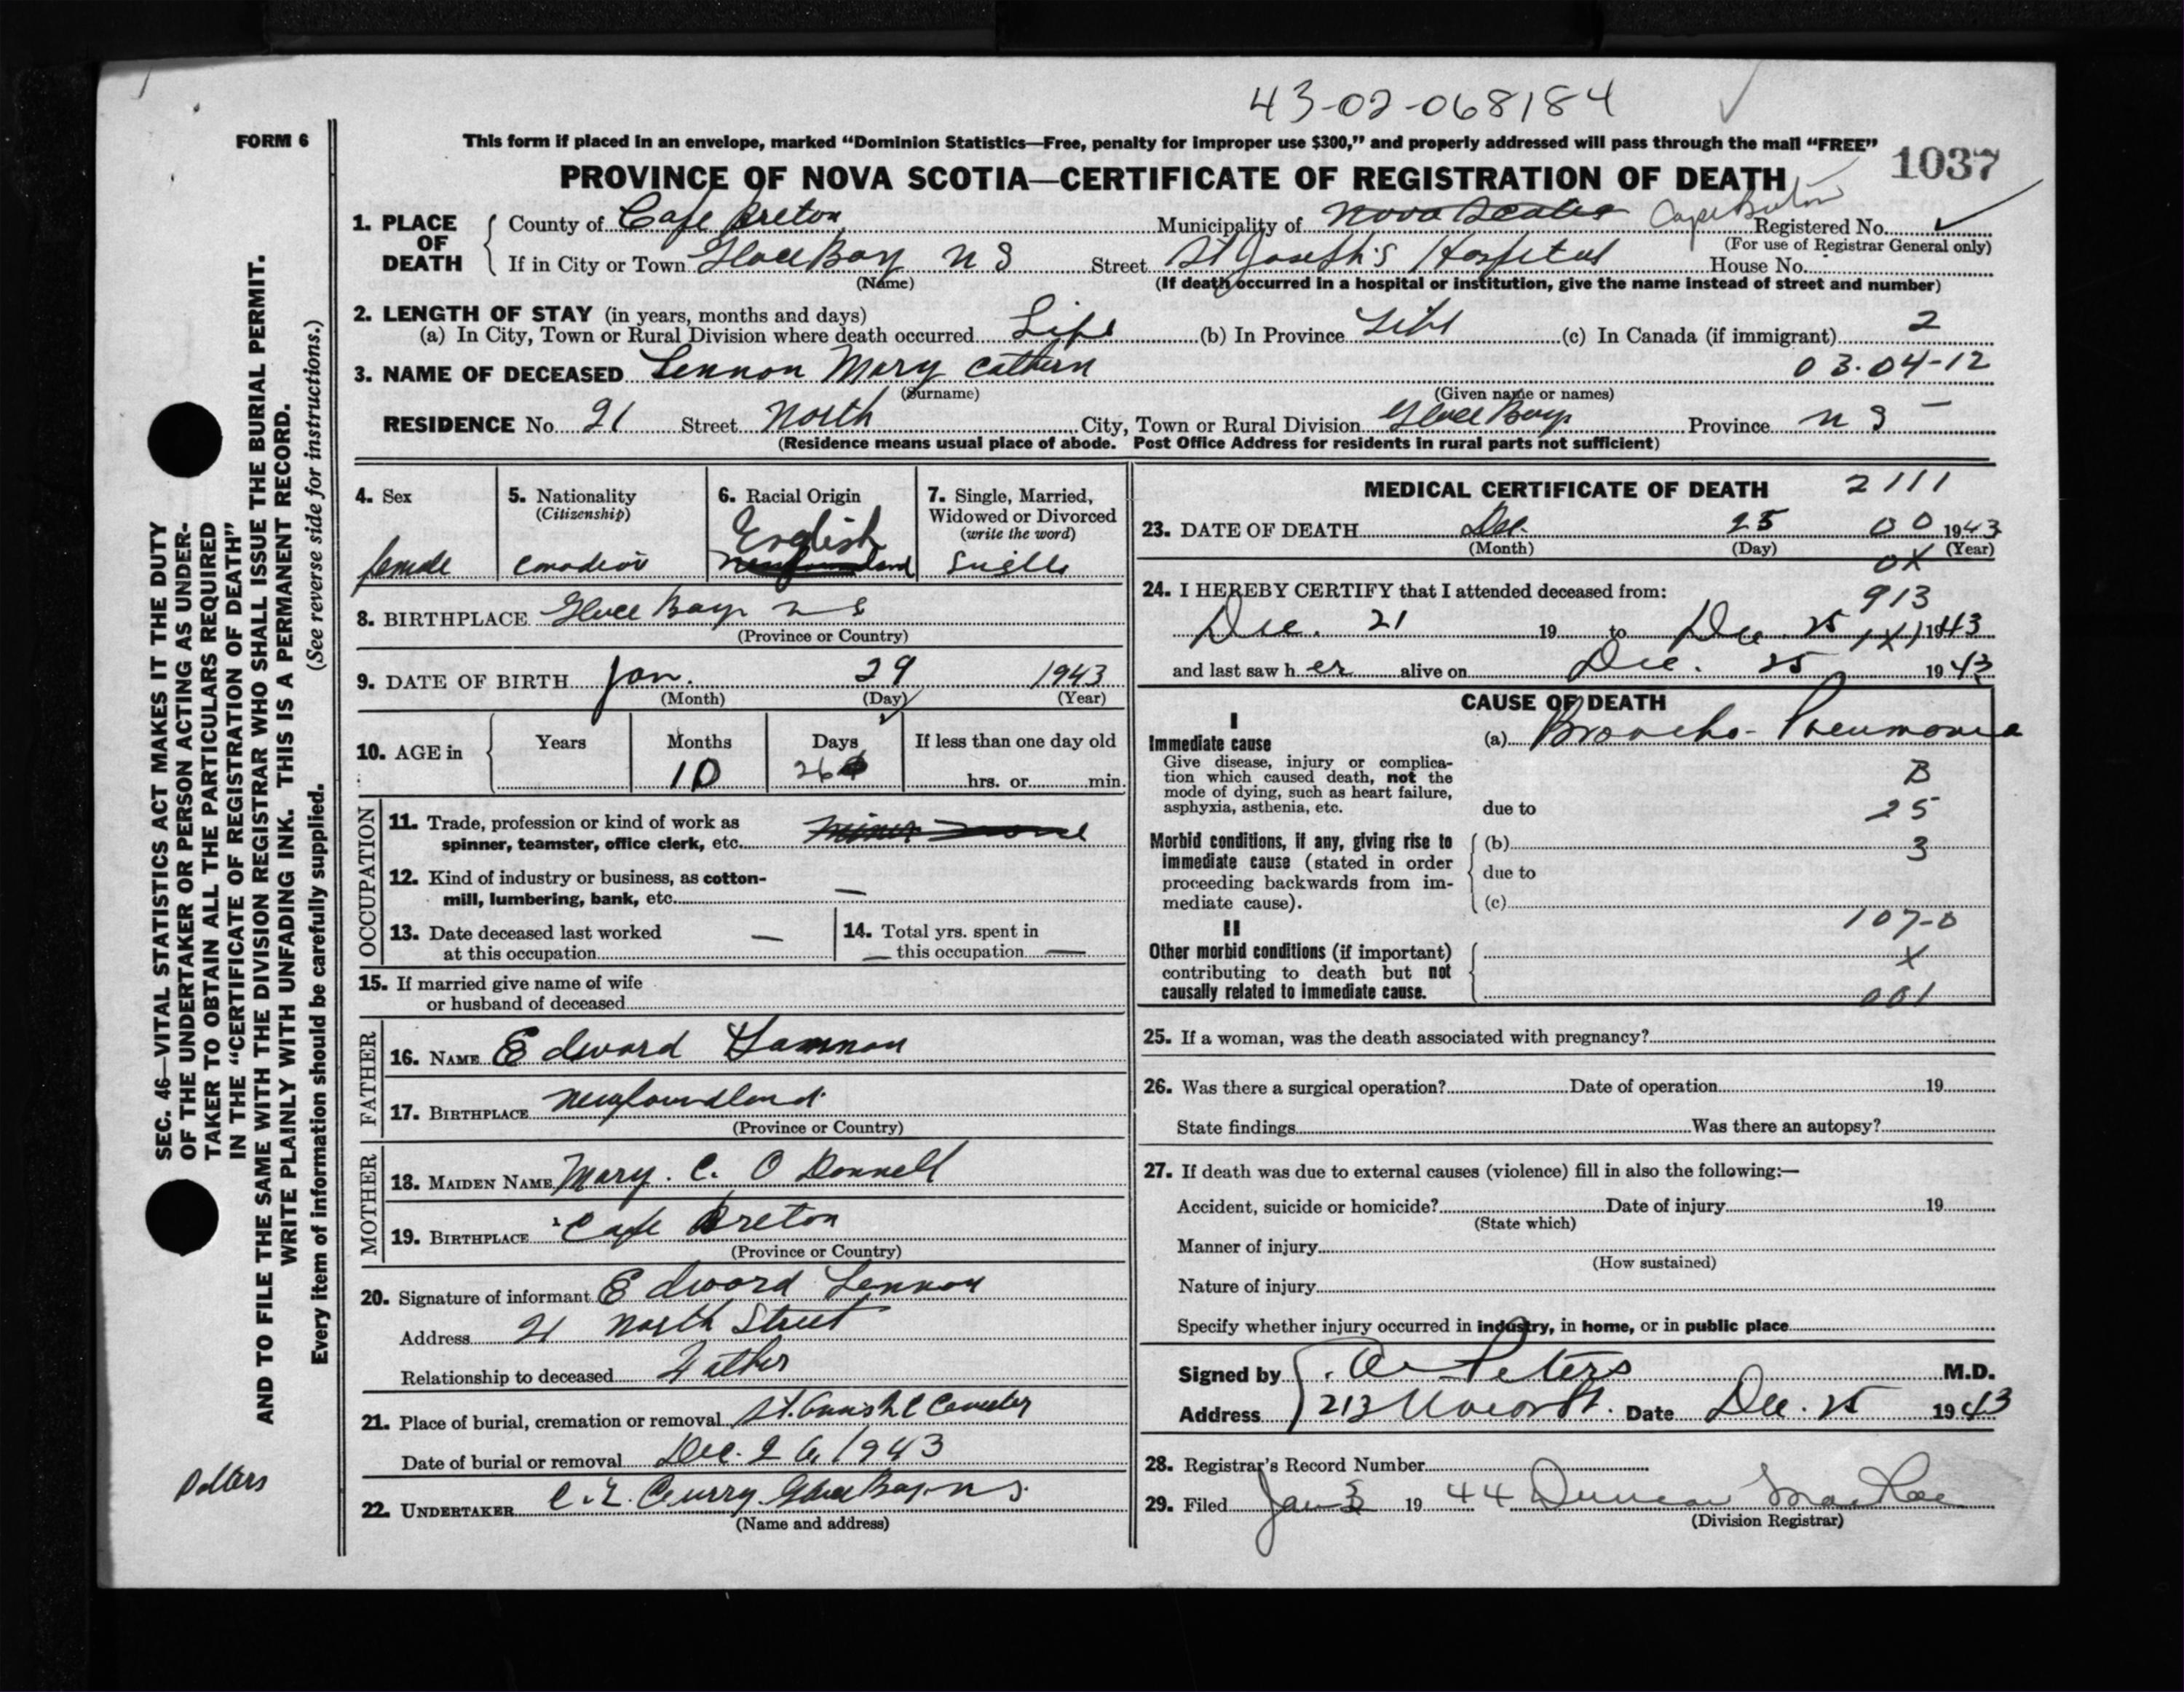 43-02-068184
FORM 6
This form if placed in an envelope, marked “Dominion Statistics—Free, penalty for improper use $300,” and properly addressed will pass through the mail “FREE”
1037
PROVINCE OF NOVA SCOTIA—CERTIFICATE OF REGISTRATION OF DEATH
1. PLACE OF DEATH { County of Cape Breton Municipality of Nova Scotia Cape Breton Registered No.
(For use of Registrar General only)
If in City or Town Glace Bay N S Street St Joseph's Hospital House No.
(Name) (If death occurred in a hospital or institution, give the name instead of street and number)
2. LENGTH OF STAY (in years, months and days)
(a) In City, Town or Rural Division where death occurred Life (b) In Province Life (c) In Canada (if immigrant) 2
3. NAME OF DECEASED Lennon Mary Cathern 03-04-12
(Surname) (Given name or names)
RESIDENCE No. 21 Street North City, Town or Rural Division Glace Bay Province N S
(Residence means usual place of abode. Post Office Address for residents in rural parts not sufficient)
4. Sex female
5. Nationality
(Citizenship)
Canadian
6. Racial Origin
English
Newfoundland
7. Single, Married, Widowed or Divorced
(write the word)
8. BIRTHPLACE Glace Bay N S
(Province or Country)
9. DATE OF BIRTH Jan. 29 1943
(Month) (Day) (Year)
10. AGE in { Years Months Days If less than one day old
10 26 hrs. or min.
OCCUPATION
11. Trade, profession or kind of work as
spinner, teamster, office clerk, etc.
12. Kind of industry or business, as cotton-
mill, lumbering, bank, etc. —
13. Date deceased last worked
at this occupation —
14. Total yrs. spent in
this occupation —
15. If married give name of wife
or husband of deceased
FATHER
16. NAME Edward Lannon
17. BIRTHPLACE Newfoundland
(Province or Country)
MOTHER
18. MAIDEN NAME Mary. C. O Donnell
19. BIRTHPLACE Cape Breton
(Province or Country)
20. Signature of informant Edward Lennon
Address 21 North Street
Relationship to deceased Father
21. Place of burial, cremation or removal St. Anns
Date of burial or removal Dec. 26, 1943
22. UNDERTAKER Curry Glace Bay N S
(Name and address)
MEDICAL CERTIFICATE OF DEATH 2111
23. DATE OF DEATH Dec. 25 00 1943
(Month) (Day) (Year)
0X
24. I HEREBY CERTIFY that I attended deceased from: 913
Dec. 21 19 to Dec. 25 1943
and last saw h er alive on Dec. 25 1943
CAUSE OF DEATH
I
Immediate cause (a) Broncho-Pneumonia
Give disease, injury or complica-
tion which caused death, not the
mode of dying, such as heart failure,
asphyxia, asthenia, etc. due to
B
25
Morbid conditions, if any, giving rise to (b) 3
immediate cause (stated in order due to
proceeding backwards from im-
mediate cause). (c)
107-0
II
Other morbid conditions (if important) X
contributing to death but not
causally related to immediate cause. 001
25. If a woman, was the death associated with pregnancy?
26. Was there a surgical operation? Date of operation 19
State findings Was there an autopsy?
27. If death was due to external causes (violence) fill in also the following:—
Accident, suicide or homicide? Date of injury 19
(State which)
Manner of injury
(How sustained)
Nature of injury
Specify whether injury occurred in industry, in home, or in public place
Signed by Peters M.D.
Address 213 Date Dec. 25 1943
28. Registrar's Record Number
29. Filed Jan 19 44 Duncan MacRae
(Division Registrar)
SEC. 46—VITAL STATISTICS ACT MAKES IT THE DUTY
OF THE UNDERTAKER OR PERSON ACTING AS UNDER-
TAKER TO OBTAIN ALL THE PARTICULARS REQUIRED
IN THE “CERTIFICATE OF REGISTRATION OF DEATH”
AND TO FILE THE SAME WITH THE DIVISION REGISTRAR WHO SHALL ISSUE THE BURIAL PERMIT.
WRITE PLAINLY WITH UNFADING INK. THIS IS A PERMANENT RECORD.
Every item of information should be carefully supplied. (See reverse side for instructions.)